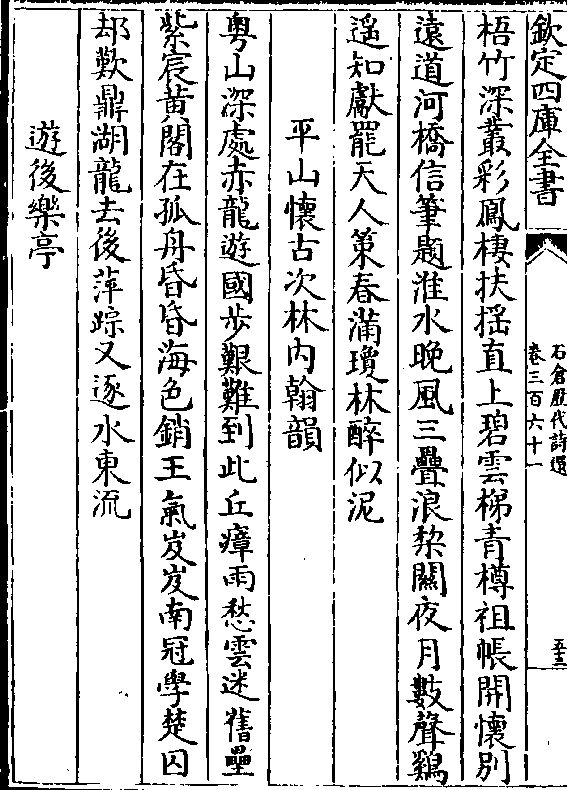 欽定四庫全書
石倉歷代詩選
卷三百六十一
梧竹深叢彩鳳棲扶揺直上碧雲梯青樽祖帳開懷别
遠道河橋信筆題淮水晚風三疊浪栔闗夜月數聲鷄
遥知獻罷天人策春滿瓊林醉似泥
平山懷古次林内翰韻
粤山深處赤龍遊國步艱難到此丘瘴雨愁雲迷舊壘
紫宸黄閣在孤舟昏昏海色銷王氣岌岌南冠學楚囚
却歎鼎湖龍去後萍踪又逐水東流
遊後樂亭